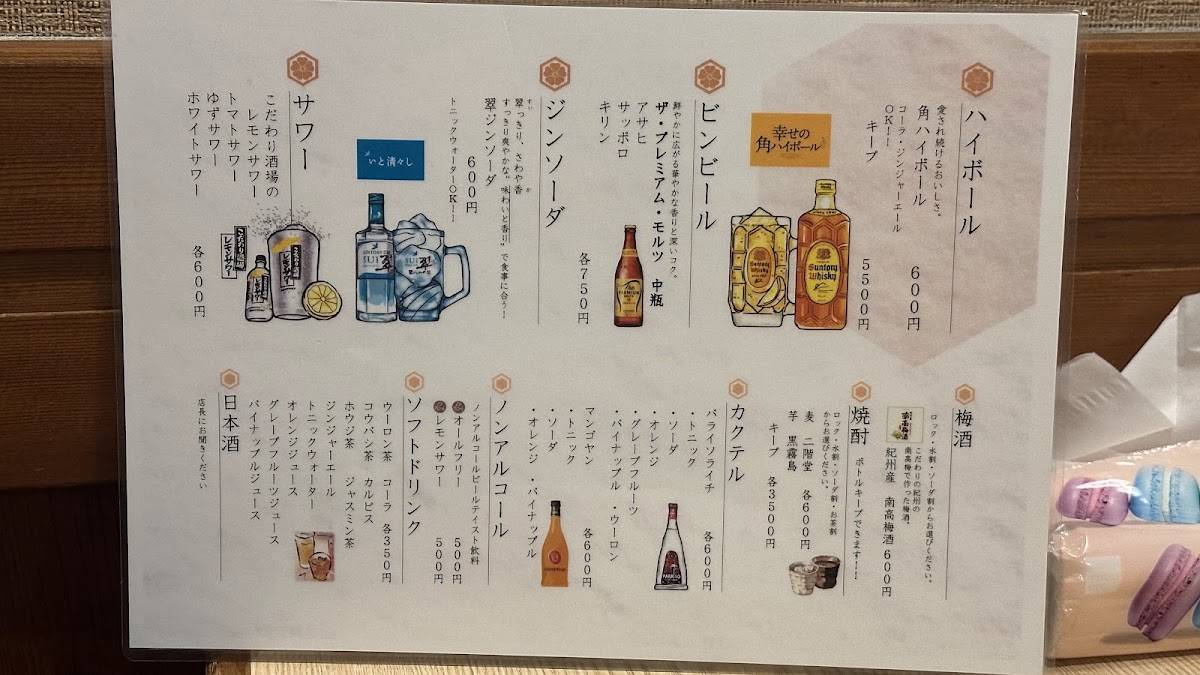 ハイボール
愛され続けるおいしさ。
角ハイボール 600円
コーラ・ジンジャーエール
OK!!
キープ 5500円
幸せの
角ハイボール
SUNTORY
WHISKY
ビンビール
鮮やかに広がる華やかな香りと深いコク。
ザ・プレミアム・モルツ 中瓶
アサヒ
サッポロ
キリン
各750円
ジンソーダ
翠っきり、さわや香
すい か
すっきり爽やかな"味わいと香り"で食事に合う!
翠ジンソーダ
600円
トニックウォーターOK!!
いと清々し
SUI
翠
SUI
翠
サワー
こだわり酒場の
レモンサワー
トマトサワー
ゆずサワー
ホワイトサワー
各600円
こだわり酒場の
レモンサワー
梅酒
ロック・水割・ソーダ割からお選びください。
こだわりの紀州の
南高梅で作った梅酒。
紀州産 南高梅酒 600円
南高梅酒
焼酎 ボトルキープできます!!
ロック・水割・ソーダ割・お茶割
からお選びください。
麦 二階堂 各600円
芋 黒霧島
キープ 各3500円
カクテル
パライソライチ 各600円
・トニック
・ソーダ
・オレンジ
・グレープフルーツ
・パイナップル ・ウーロン
マンゴヤン 各600円
・トニック
・ソーダ
・オレンジ ・パイナップル
ノンアルコール
ノンアルコールビールテイスト飲料
オールフリー 500円
レモンサワー 500円
ソフトドリンク
ウーロン茶 コーラ 各350円
コウバシ茶 カルピス
ホウジ茶 ジャスミン茶
ジンジャーエール
トニックウォーター
オレンジジュース
グレープフルーツジュース
パイナップルジュース
日本酒
店長にお聞きください